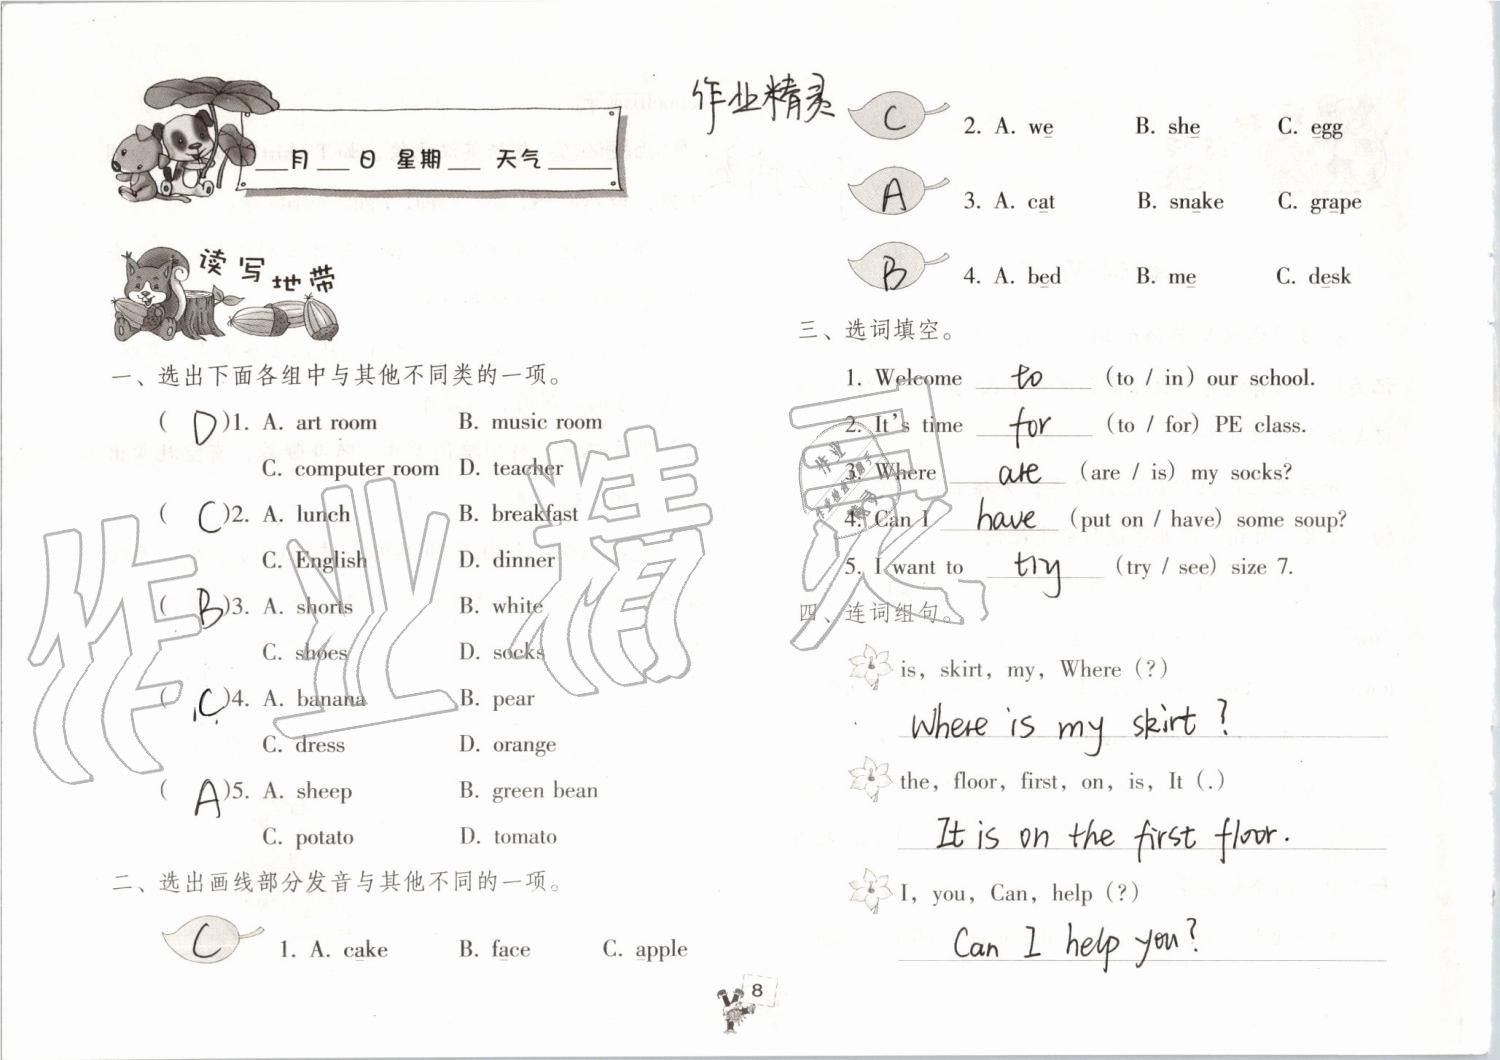 作业精灵
___月___日 星期___ 天气_____
读写地带
一、选出下面各组中与其他不同类的一项。
( D )1. A. art room B. music room
C. computer room D. teacher
( C )2. A. lunch B. breakfast
C. English D. dinner
( B )3. A. shorts B. white
C. shoes D. socks
( C )4. A. banana B. pear
C. dress D. orange
( A )5. A. sheep B. green bean
C. potato D. tomato
二、选出画线部分发音与其他不同的一项。
C 1. A. cake B. face C. apple
C 2. A. we B. she C. egg
A 3. A. cat B. snake C. grape
B 4. A. bed B. me C. desk
三、选词填空。
1. Welcome to (to / in) our school.
2. It's time for (to / for) PE class.
3. Where are (are / is) my socks?
4. Can I have (put on / have) some soup?
5. I want to try (try / see) size 7.
四、连词组句。
is, skirt, my, Where (?)
Where is my skirt?
the, floor, first, on, is, It (.)
It is on the first floor.
I, you, Can, help (?)
Can I help you?
8
作业精灵